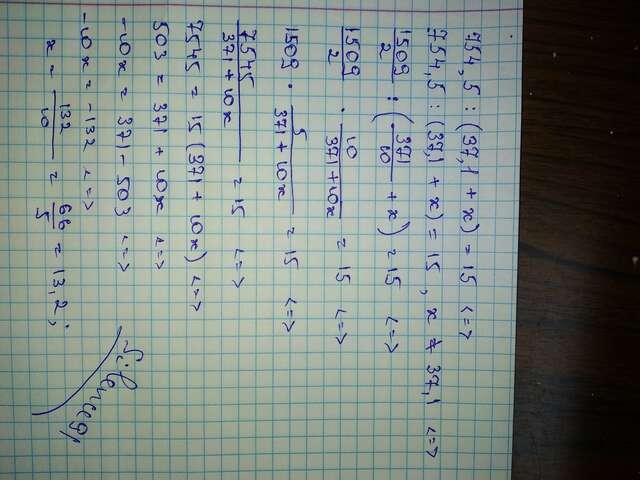 754,5 : (37,1 + x) = 15 <=>
754,5 : (37,1 + x) = 15 , x ≠ 37,1 <=>
1509/2 : (371/10 + x) = 15 <=>
1509/2 · 10/(371 + 10x) = 15 <=>
1509 · 5/(371 + 10x) = 15 <=>
7545/(371 + 10x) = 15 <=>
7545 = 15 (371 + 10x) <=>
503 = 371 + 10x <=>
-10x = 371 - 503 <=>
-10x = -132 <=>
x = 132/10 = 66/5 = 13,2 ;